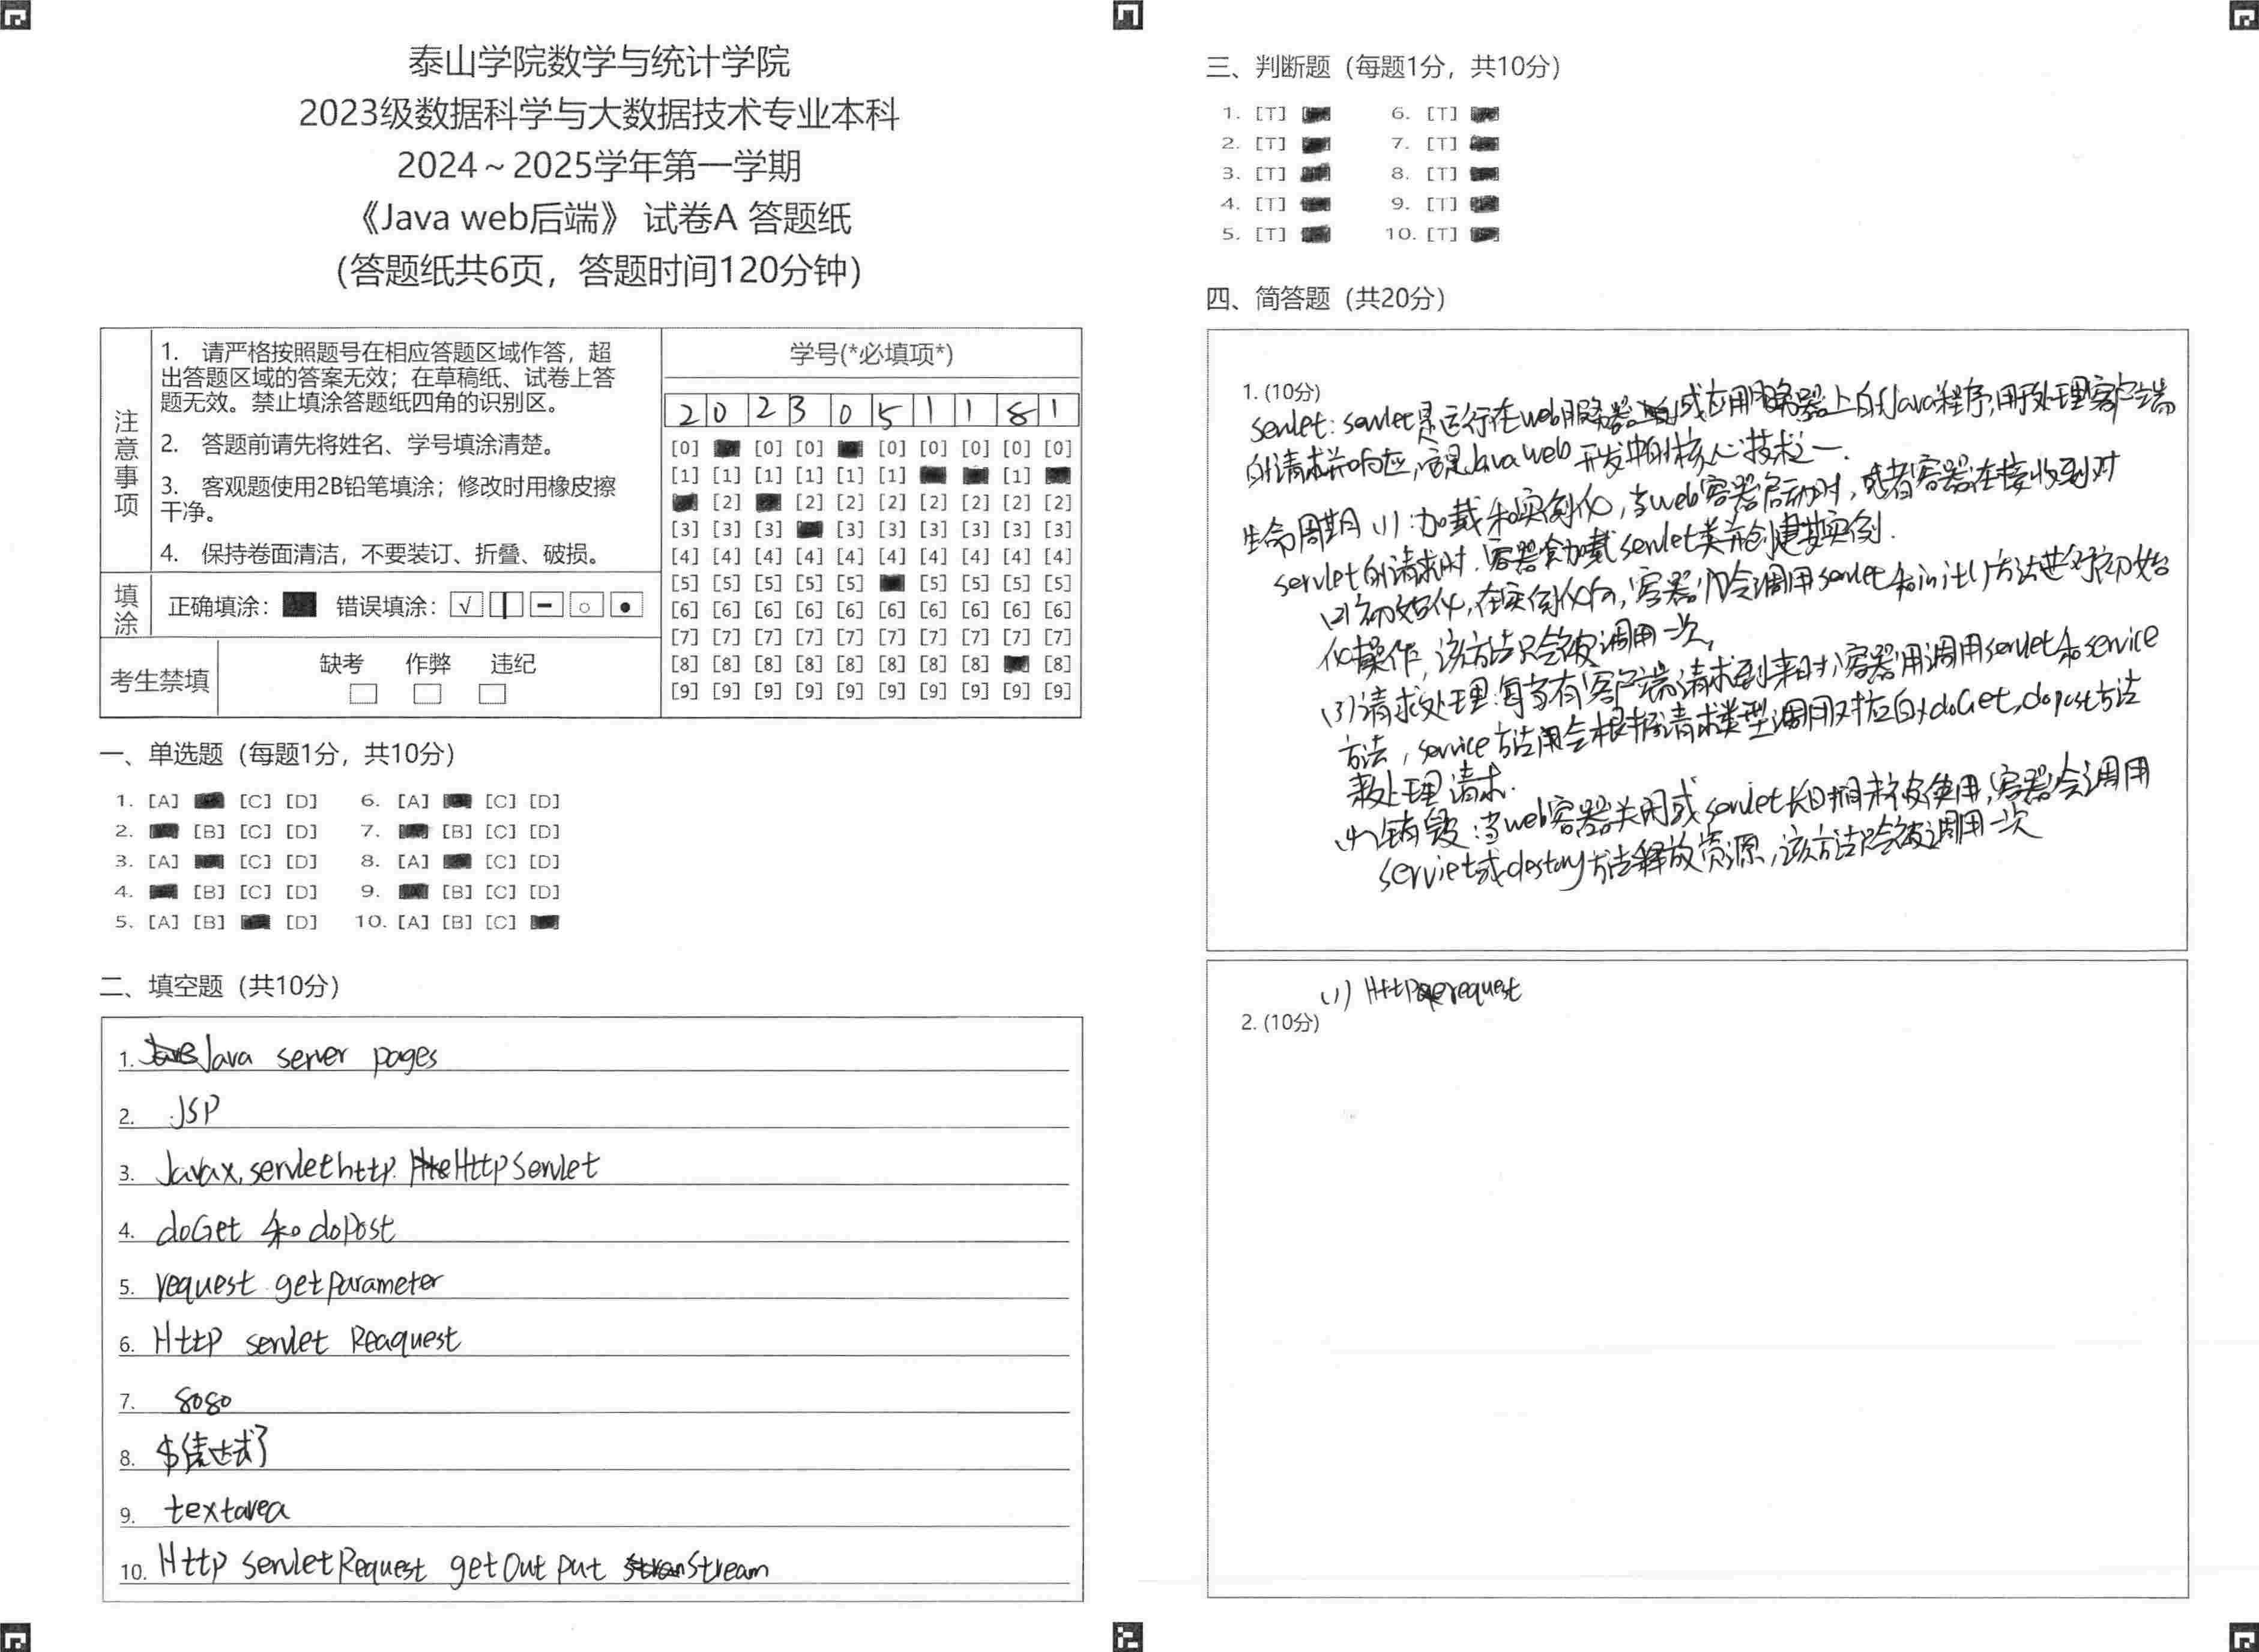 泰山学院数学与统计学院
2023级数据科学与大数据技术专业本科
2024～2025学年第一学期
《Java web后端》 试卷A 答题纸
(答题纸共6页，答题时间120分钟)
注意事项
1. 请严格按照题号在相应答题区域作答，超
出答题区域的答案无效；在草稿纸、试卷上答
题无效。禁止填涂答题纸四角的识别区。
2. 答题前请先将姓名、学号填涂清楚。
3. 客观题使用2B铅笔填涂；修改时用橡皮擦
干净。
4. 保持卷面清洁，不要装订、折叠、破损。
填涂
正确填涂： 错误填涂：
考生禁填
缺考 作弊 违纪
学号(*必填项*)
2 0 2 3 0 5 1 1 8 1
[0] [0] [0] [0] [0] [0] [0] [0]
[1] [1] [1] [1] [1] [1] [1]
[2] [2] [2] [2] [2] [2] [2] [2]
[3] [3] [3] [3] [3] [3] [3] [3] [3]
[4] [4] [4] [4] [4] [4] [4] [4] [4] [4]
[5] [5] [5] [5] [5] [5] [5] [5] [5]
[6] [6] [6] [6] [6] [6] [6] [6] [6] [6]
[7] [7] [7] [7] [7] [7] [7] [7] [7] [7]
[8] [8] [8] [8] [8] [8] [8] [8] [8]
[9] [9] [9] [9] [9] [9] [9] [9] [9] [9]
一、单选题（每题1分，共10分）
1. [A] [C] [D] 6. [A] [C] [D]
2. [B] [C] [D] 7. [B] [C] [D]
3. [A] [C] [D] 8. [A] [C] [D]
4. [B] [C] [D] 9. [B] [C] [D]
5. [A] [B] [D] 10. [A] [B] [C]
二、填空题（共10分）
1. Java server pages
2. JSP
3. Javax.servlethttp. HttpServlet
4. doGet 和 doPost
5. request getParameter
6. Http servlet Reaquest
7. 8080
8. ${表达式}
9. textarea
10. Http ServletRequest getOut put Stream
三、判断题（每题1分，共10分）
1. [T] 6. [T]
2. [T] 7. [T]
3. [T] 8. [T]
4. [T] 9. [T]
5. [T] 10. [T]
四、简答题（共20分）
1. (10分)
servlet: servlet是运行在web服务器或应用服务器上的Java程序,用于处理客户端
的请求并响应,它是Java web 开发中的核心技术之一.
生命周期 (1):加载和实例化,当web容器启动时,或者容器在接收到对
servlet的请求时.容器会加载servlet类并创建其实例.
(2)初始化,在实例化后,容器会调用servlet和init()方法进行初始
化操作,该方法只会被调用一次,
(3)请求处理:每当有客户端请求到来时,容器用调用servlet和service
方法,service方法会根据请求类型调用对应的doGet,dopost方法
来处理请求.
(4)销毁:当web容器关闭或servlet长期未被使用,容器会调用
servlet或destory方法释放资源,该方法只会被调用一次
(1) Http request
2. (10分)